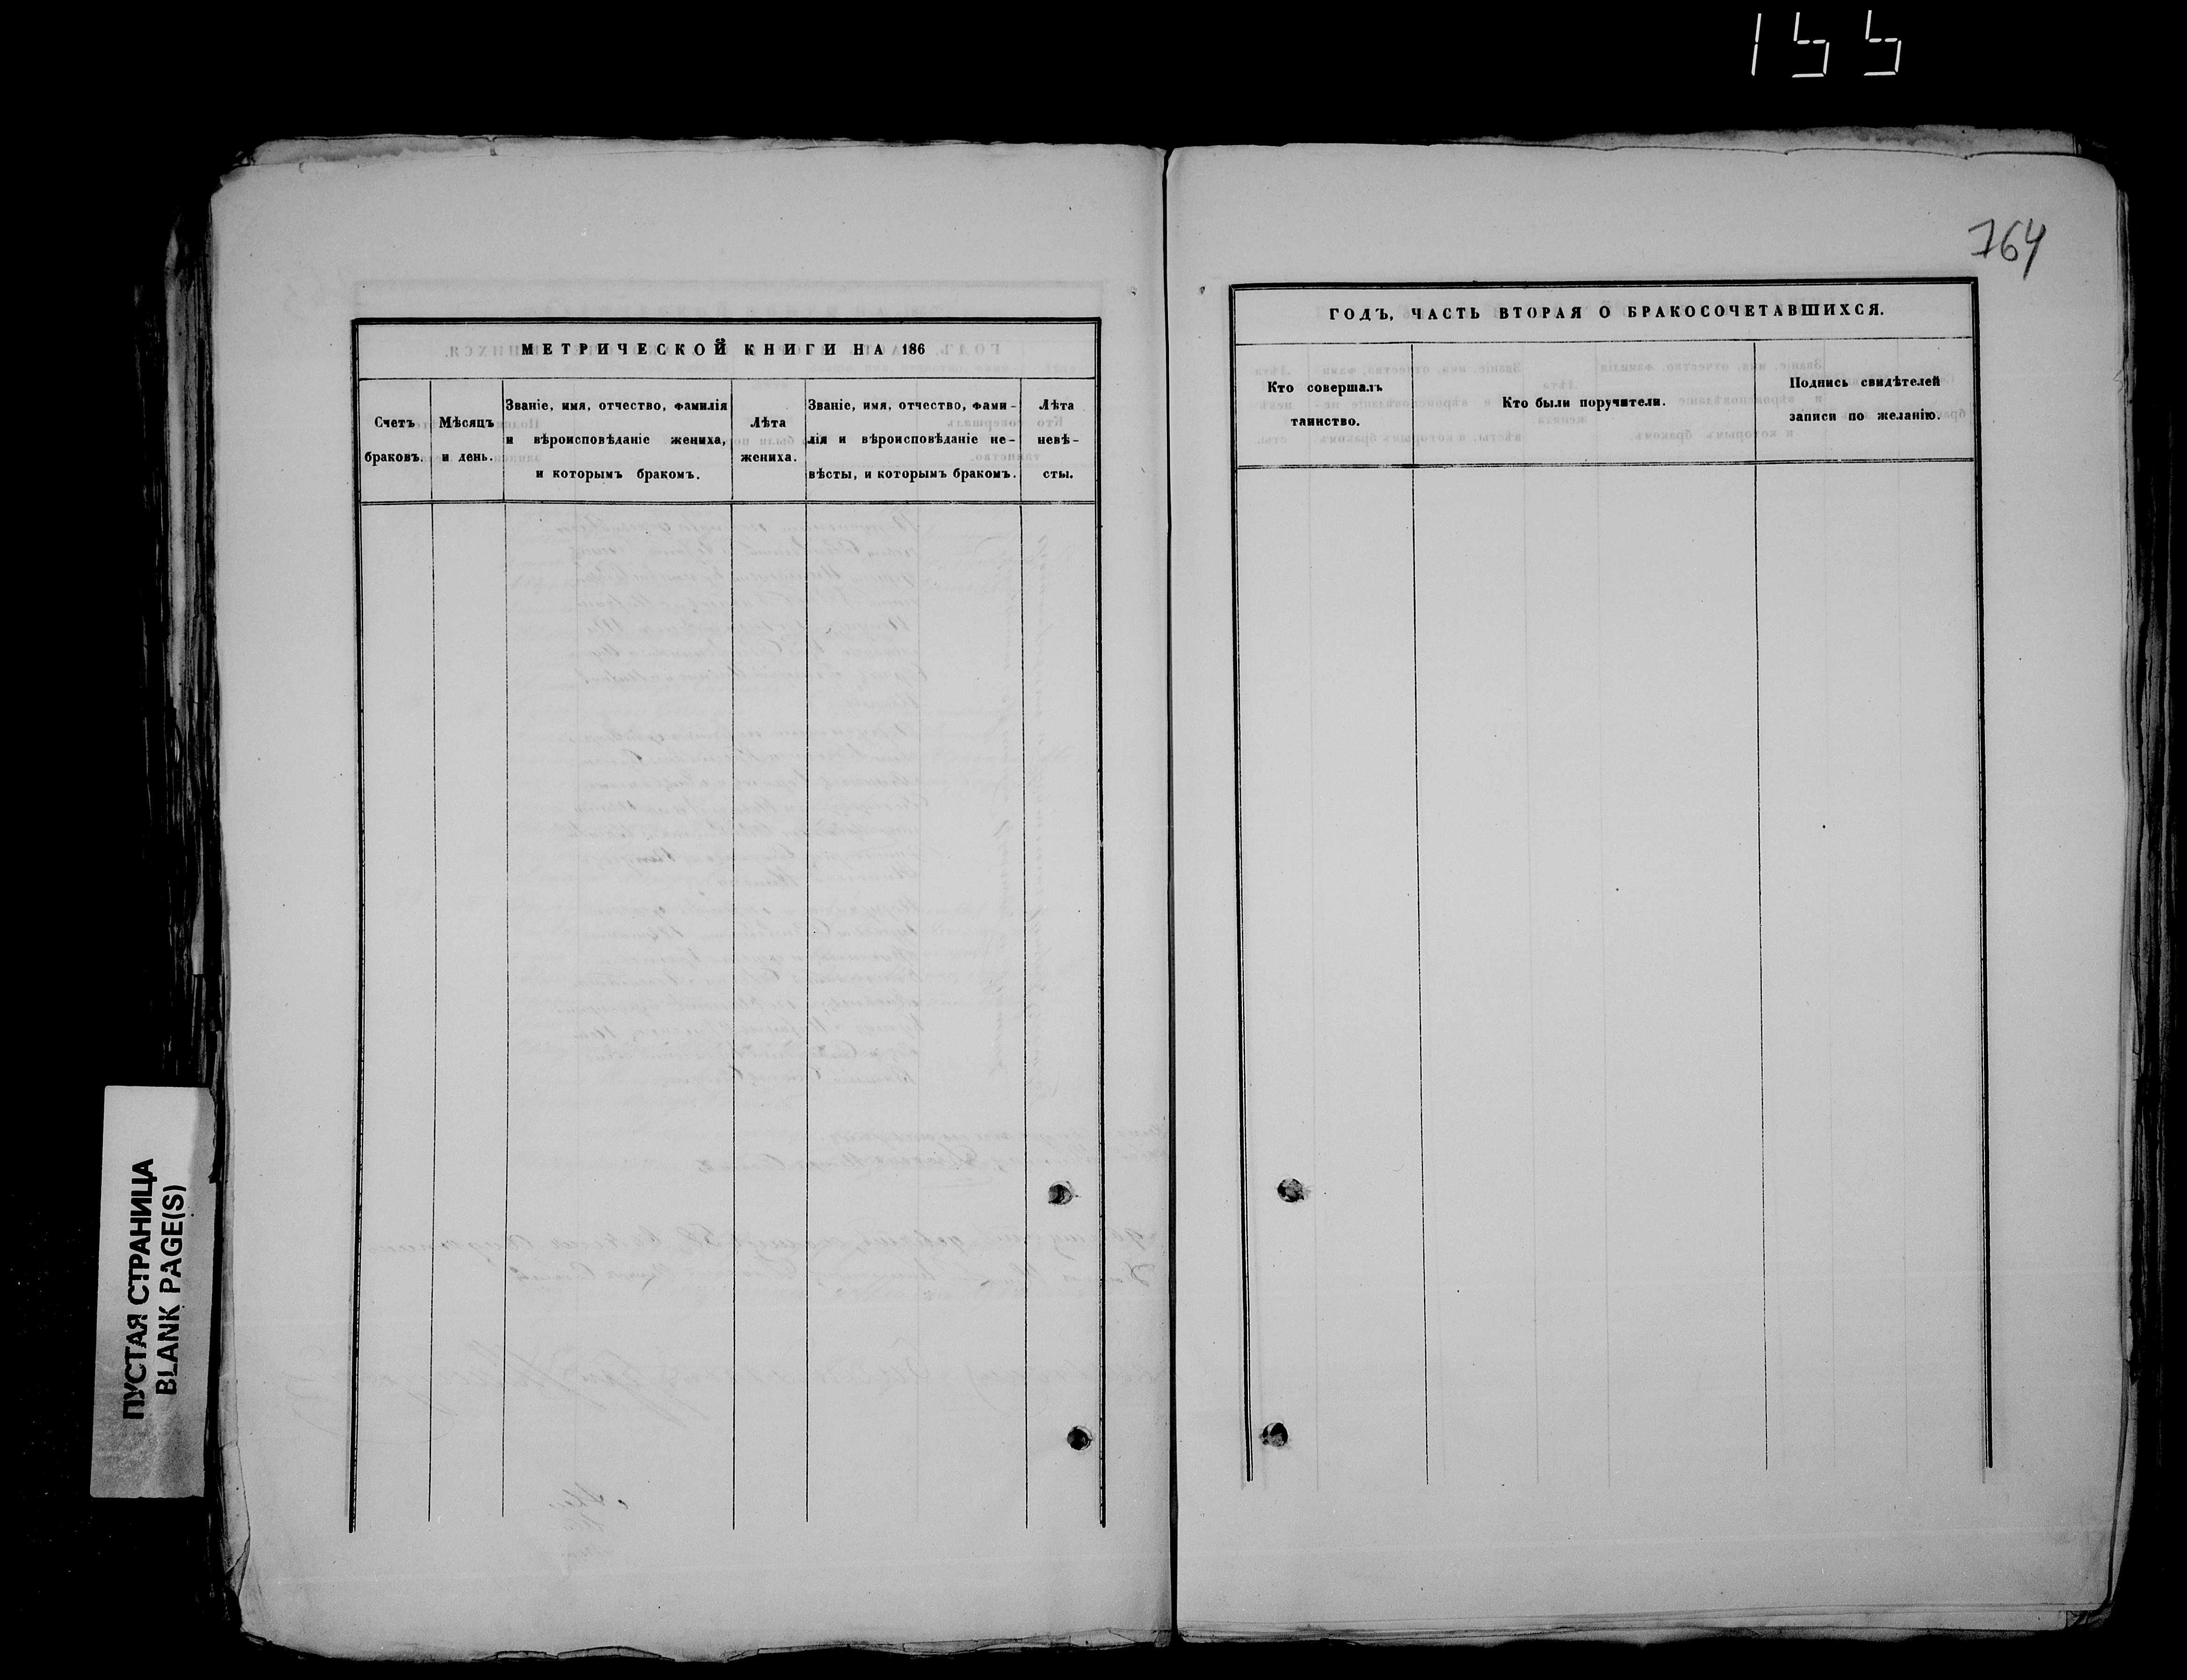 155
764
МЕТРИЧЕСКОЙ КНИГИ НА 186
Счетъ
браковъ.
Мѣсяцъ
и день.
Званіе, имя, отчество, фамилія
и вѣроисповѣданіе жениха,
и которымъ бракомъ.
Лѣта
жениха.
Званіе, имя, отчество, фами-
лія и вѣроисповѣданіе не-
вѣсты, и которымъ бракомъ.
Лѣта
невѣ-
сты.
ГОДЪ, ЧАСТЬ ВТОРАЯ О БРАКОСОЧЕТАВШИХСЯ.
Кто совершалъ
таинство.
Кто были поручители.
Подпись свидѣтелей
записи по желанію.
ПУСТАЯ СТРАНИЦА
BLANK PAGE(S)